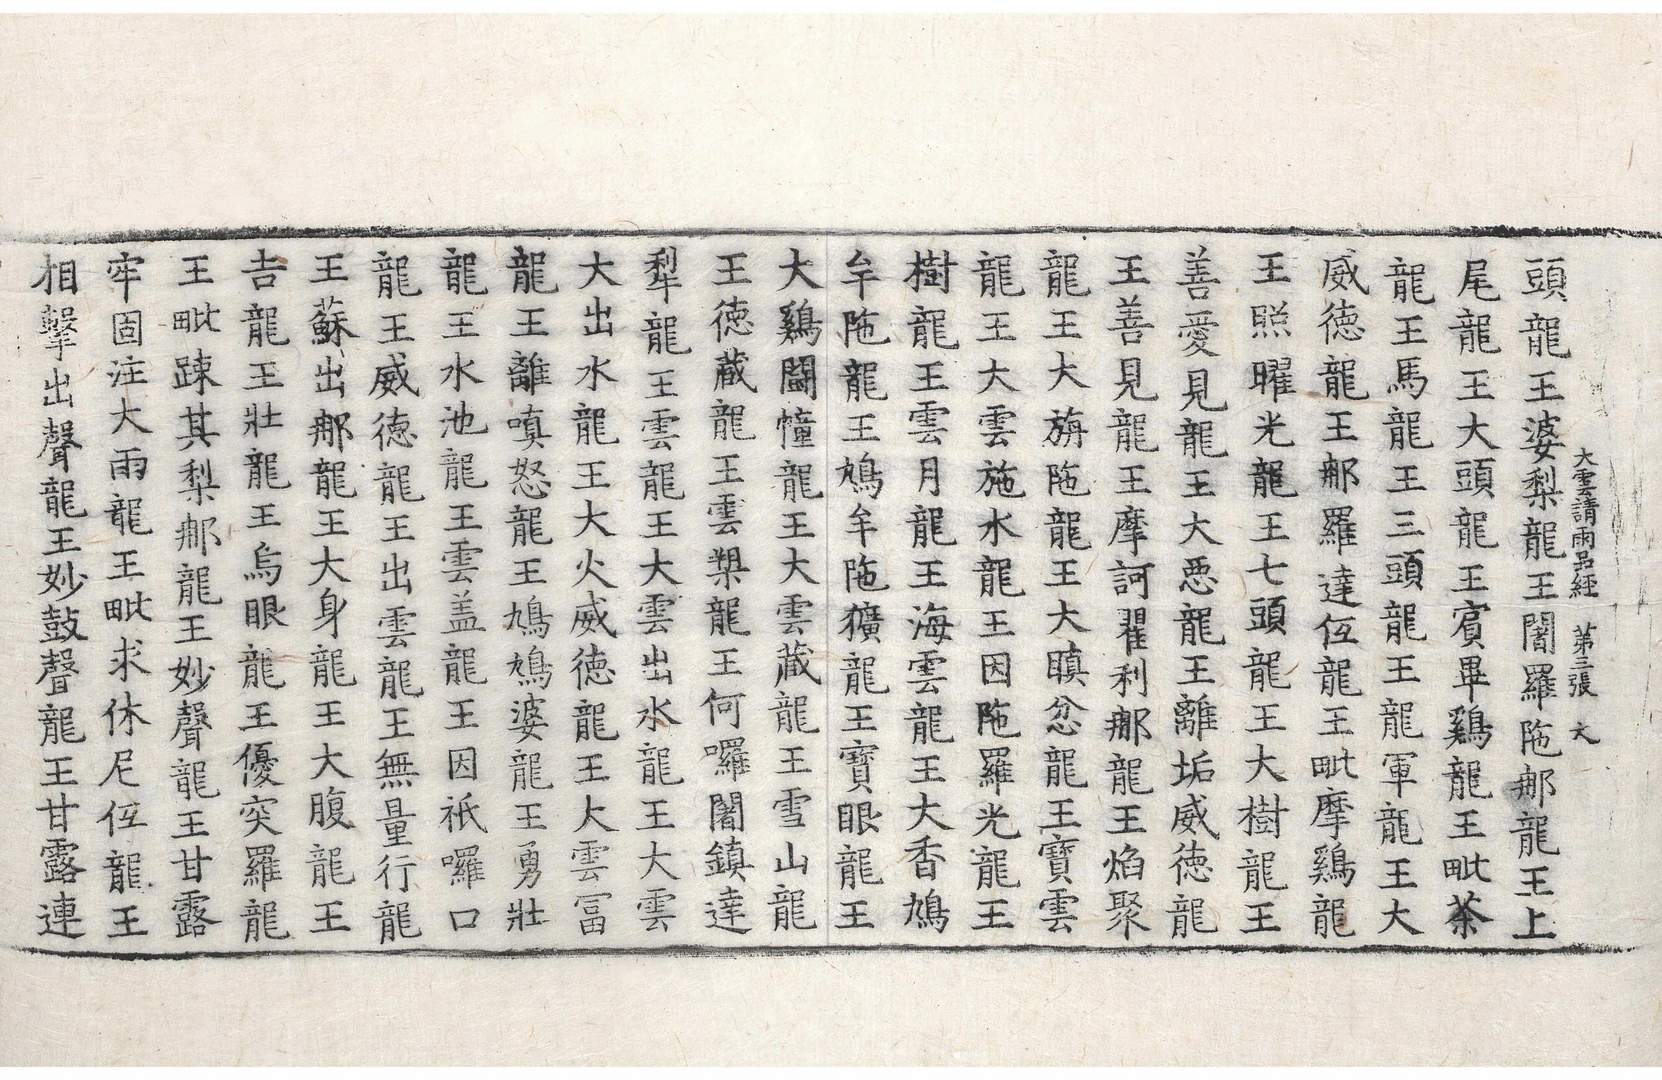 大雲請雨品經 第三張 文
頭龍王婆梨龍王闍羅陁那龍王上
尾龍王大頭龍王賔畢鷄龍王毗荼
龍王馬龍王三頭龍王龍軍龍王大
威德龍王那羅達伍龍王毗摩鷄龍
王照曜光龍王七頭龍王大樹龍王
善愛見龍王大惡龍王離垢威德龍
王善見龍王摩訶瞿利那龍王焰聚
龍王大旃陁龍王大瞋忿龍王寶雲
龍王大雲施水龍王因陁羅光龍王
樹龍王雲月龍王海雲龍王大香鳩
牟陁龍王鳩牟陁獷龍王寶眼龍王
大鷄闘幢龍王大雲藏龍王雪山龍
王德藏龍王雲槊龍王何囉闍鎮達
犂龍王雲龍王大雲出水龍王大雲
大出水龍王大火威德龍王大雲冨
龍王離嗔怒龍王鳩鳩婆龍王勇壯
龍王水池龍王雲盖龍王因祇囉口
龍王威德龍王出雲龍王無量行龍
王蘇出那龍王大身龍王大腹龍王
吉龍王壯龍王烏眼龍王優突羅龍
王毗踈其梨那龍王妙聲龍王甘露
牢固注大雨龍王毗求休尼伍龍王
相擊出聲龍王妙鼓聲龍王甘露連